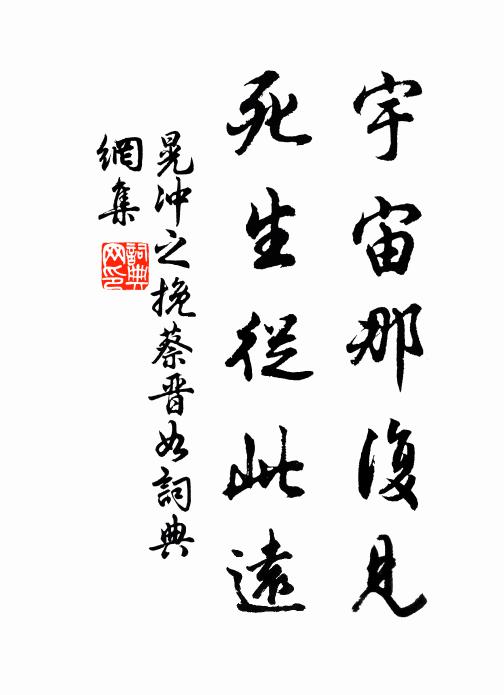 宇宙那復見
死生從此遠
晁沖之挽蔡晋如詞典
網集
詞典
网印